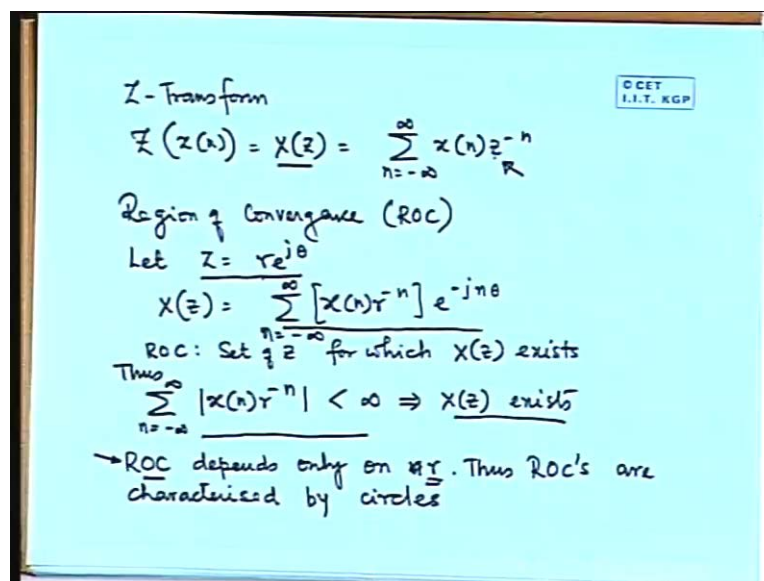 Z-Transform
© CET
I.I.T. KGP
Z(x(n)) = X(z) = ∑_{n=-∞}^{∞} x(n) z^{-n}
Region of Convergance (ROC)
Let Z = re^{jθ}
X(z) = ∑_{n=-∞}^{∞} [x(n) r^{-n}] e^{-jnθ}
ROC: Set of z for which X(z) exists
Thus
∑_{n=-∞}^{∞} |x(n) r^{-n}| < ∞ ⇒ X(z) exists
→ROC depends only on r. Thus ROC's are
characterised by circles